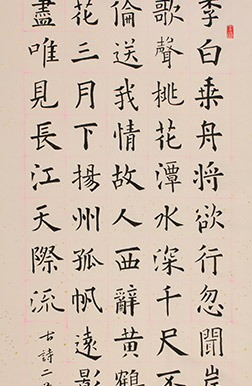 李白乘舟將欲行忽聞岸
歌聲桃花潭水深千尺不
倫送我情故人西辭黃鶴
花三月下揚州孤帆遠影
盡唯見長江天際流
古詩二